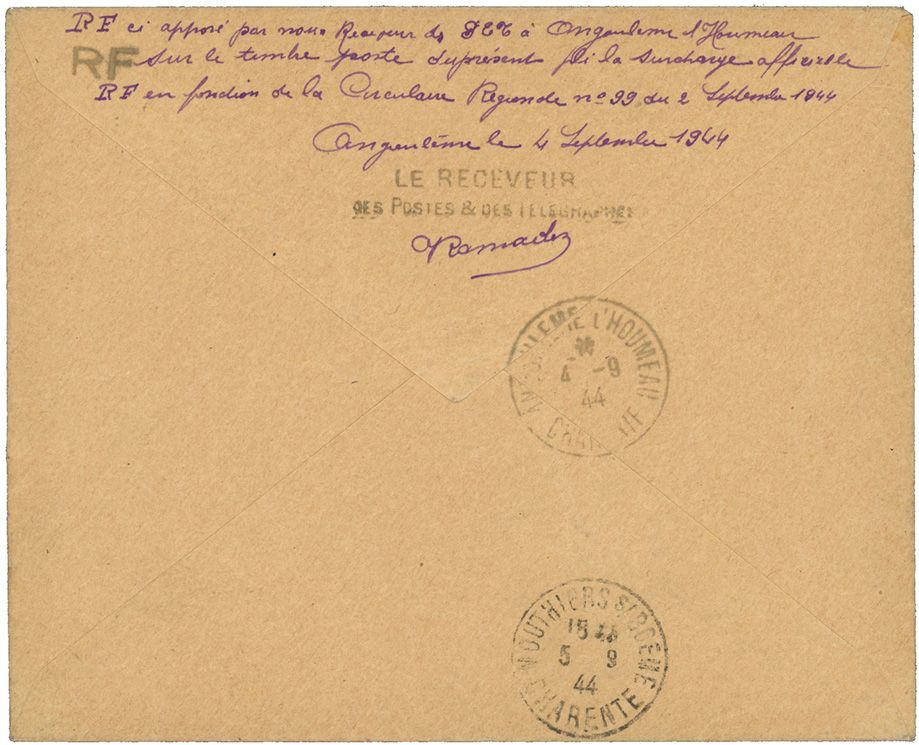 RF ci apposé par nous Receveur des PTT à Angoulême l'Houmeau
RF
sur le timbre poste du présent pli la surcharge officielle
RF en fonction de la Circulaire Régionale n° 99 du 2 Septembre 1944
Angoulême le 4 Septembre 1944
LE RECEVEUR
DES POSTES & DES TELEGRAPHES
Ramadez
ANGOULEME L'HOUMEAU
4 -9
44
CHARENTE
MOUTHIERS S/BOEME
15 45
5 9
44
CHARENTE